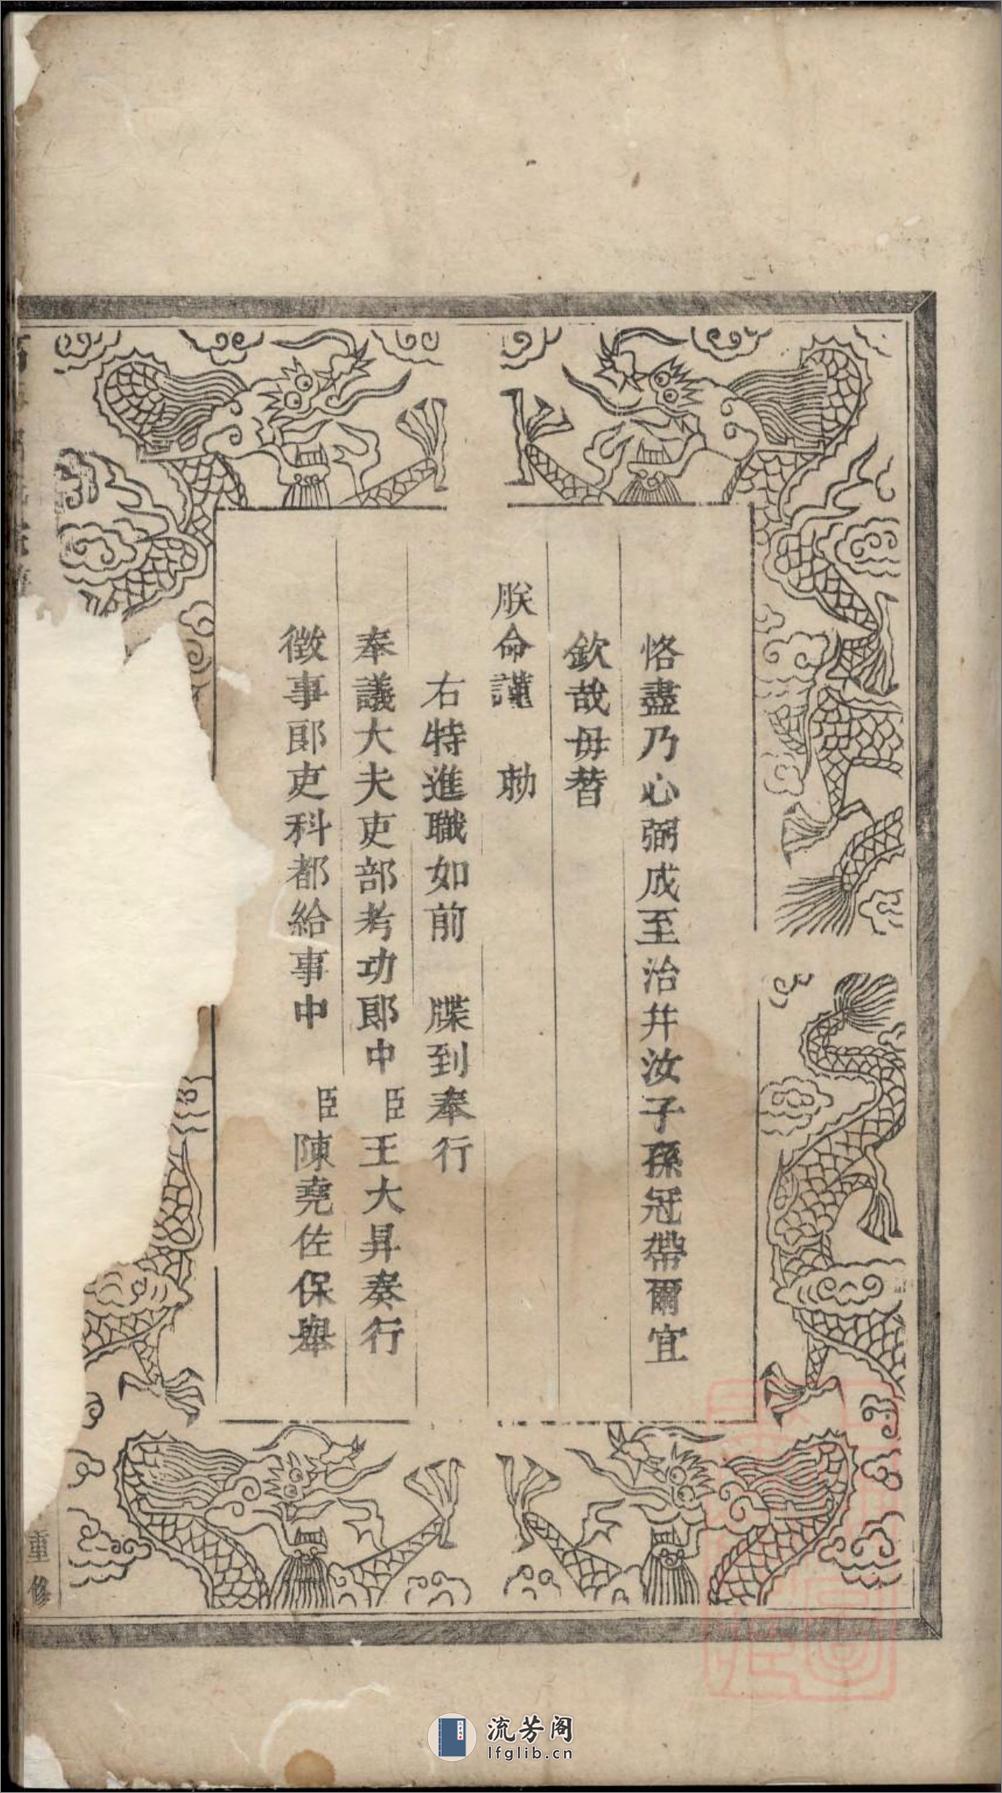 恪盡乃心弼成至治并汝子孫冠帶爾宜
欽哉毋替
朕命謹　勅
右特進職如前　牒到奉行
奉議大夫吏部考功郎中臣王大昇奏行
徵事郎吏科都給事中　臣陳堯佐保舉
重修
流芳阁
lfglib.cn